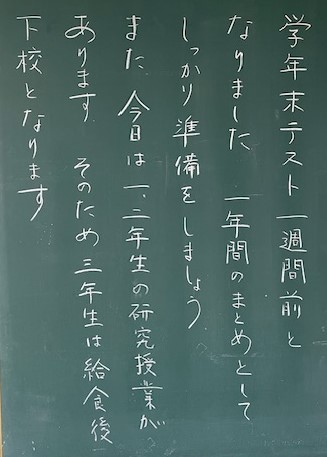 学年末テスト一週間前と
なりました 一年間のまとめとして
しっかり準備をしましょう
また 今日は一、二年生の研究授業が
あります そのため三年生は給食後
下校となります